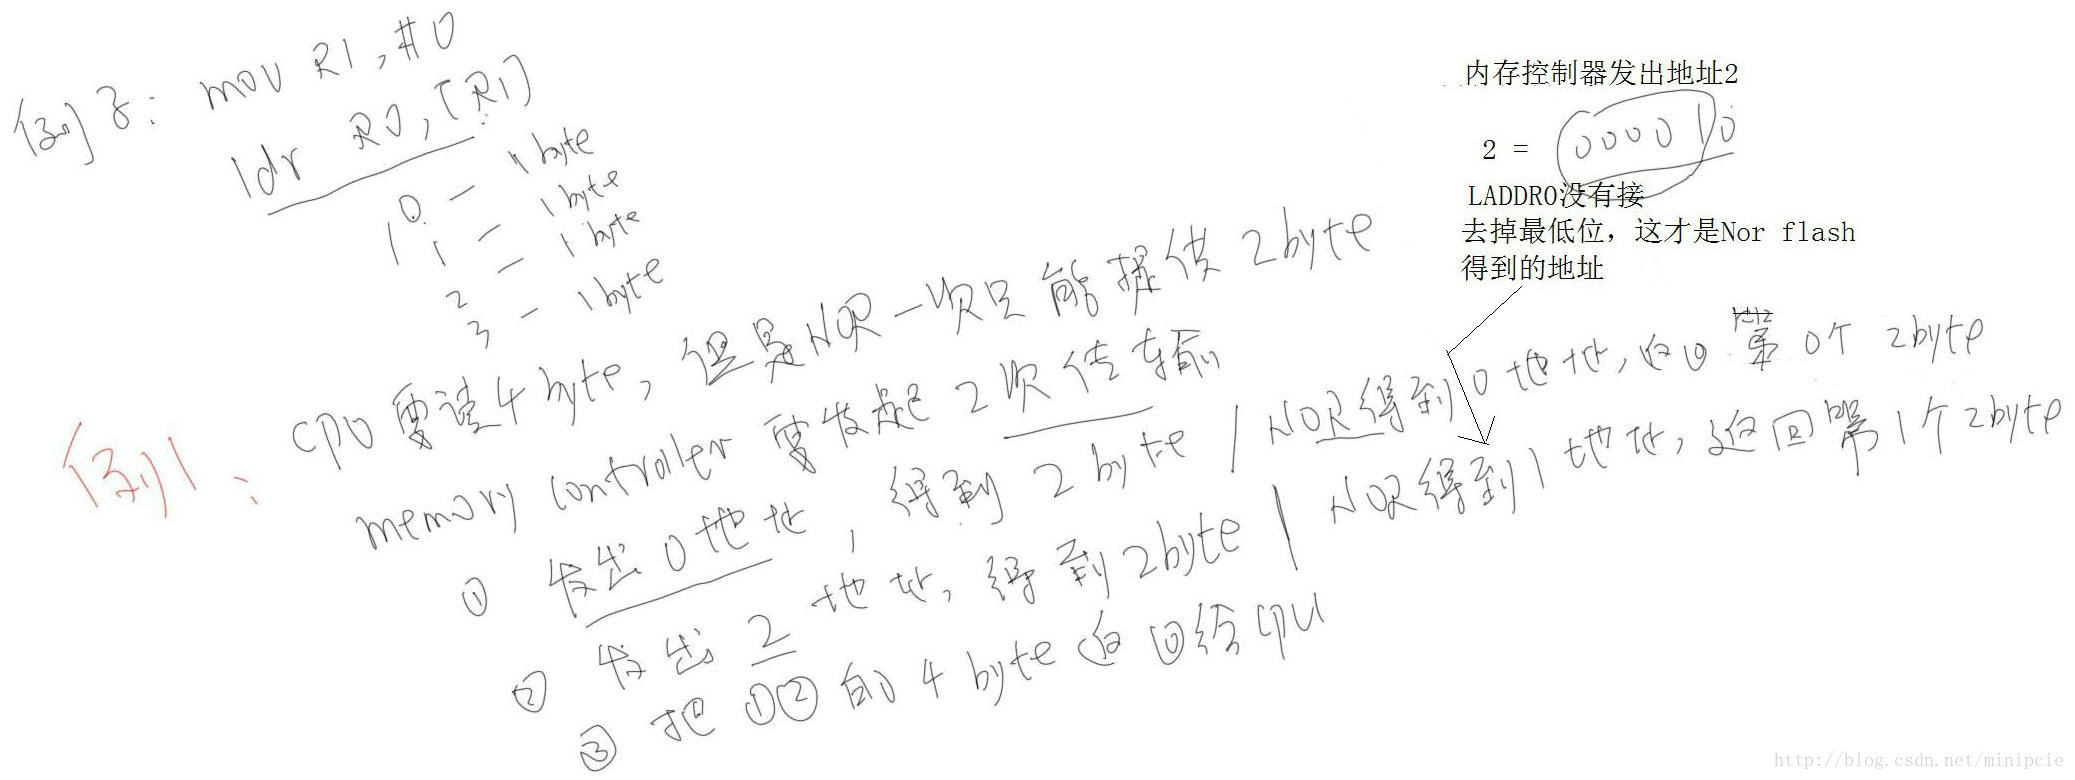 例子: mov R1, #0
ldr R0, [R1]
0 — 1 byte
1 — 1 byte
2 — 1 byte
3 — 1 byte
例1:
CPU要读4byte, 但是NOR一次只能提供2byte
memory controller 要发起2次传输
① 发出0地址, 得到2byte / NOR得到0地址, 返回第0个2byte
② 发出2地址, 得到2byte | NOR得到1地址, 返回第1个2byte
③ 把①②的4byte返回给CPU
内存控制器发出地址2
2 = 000010
LADDR0没有接
去掉最低位，这才是Nor flash
得到的地址
http://blog.csdn.net/minipcie